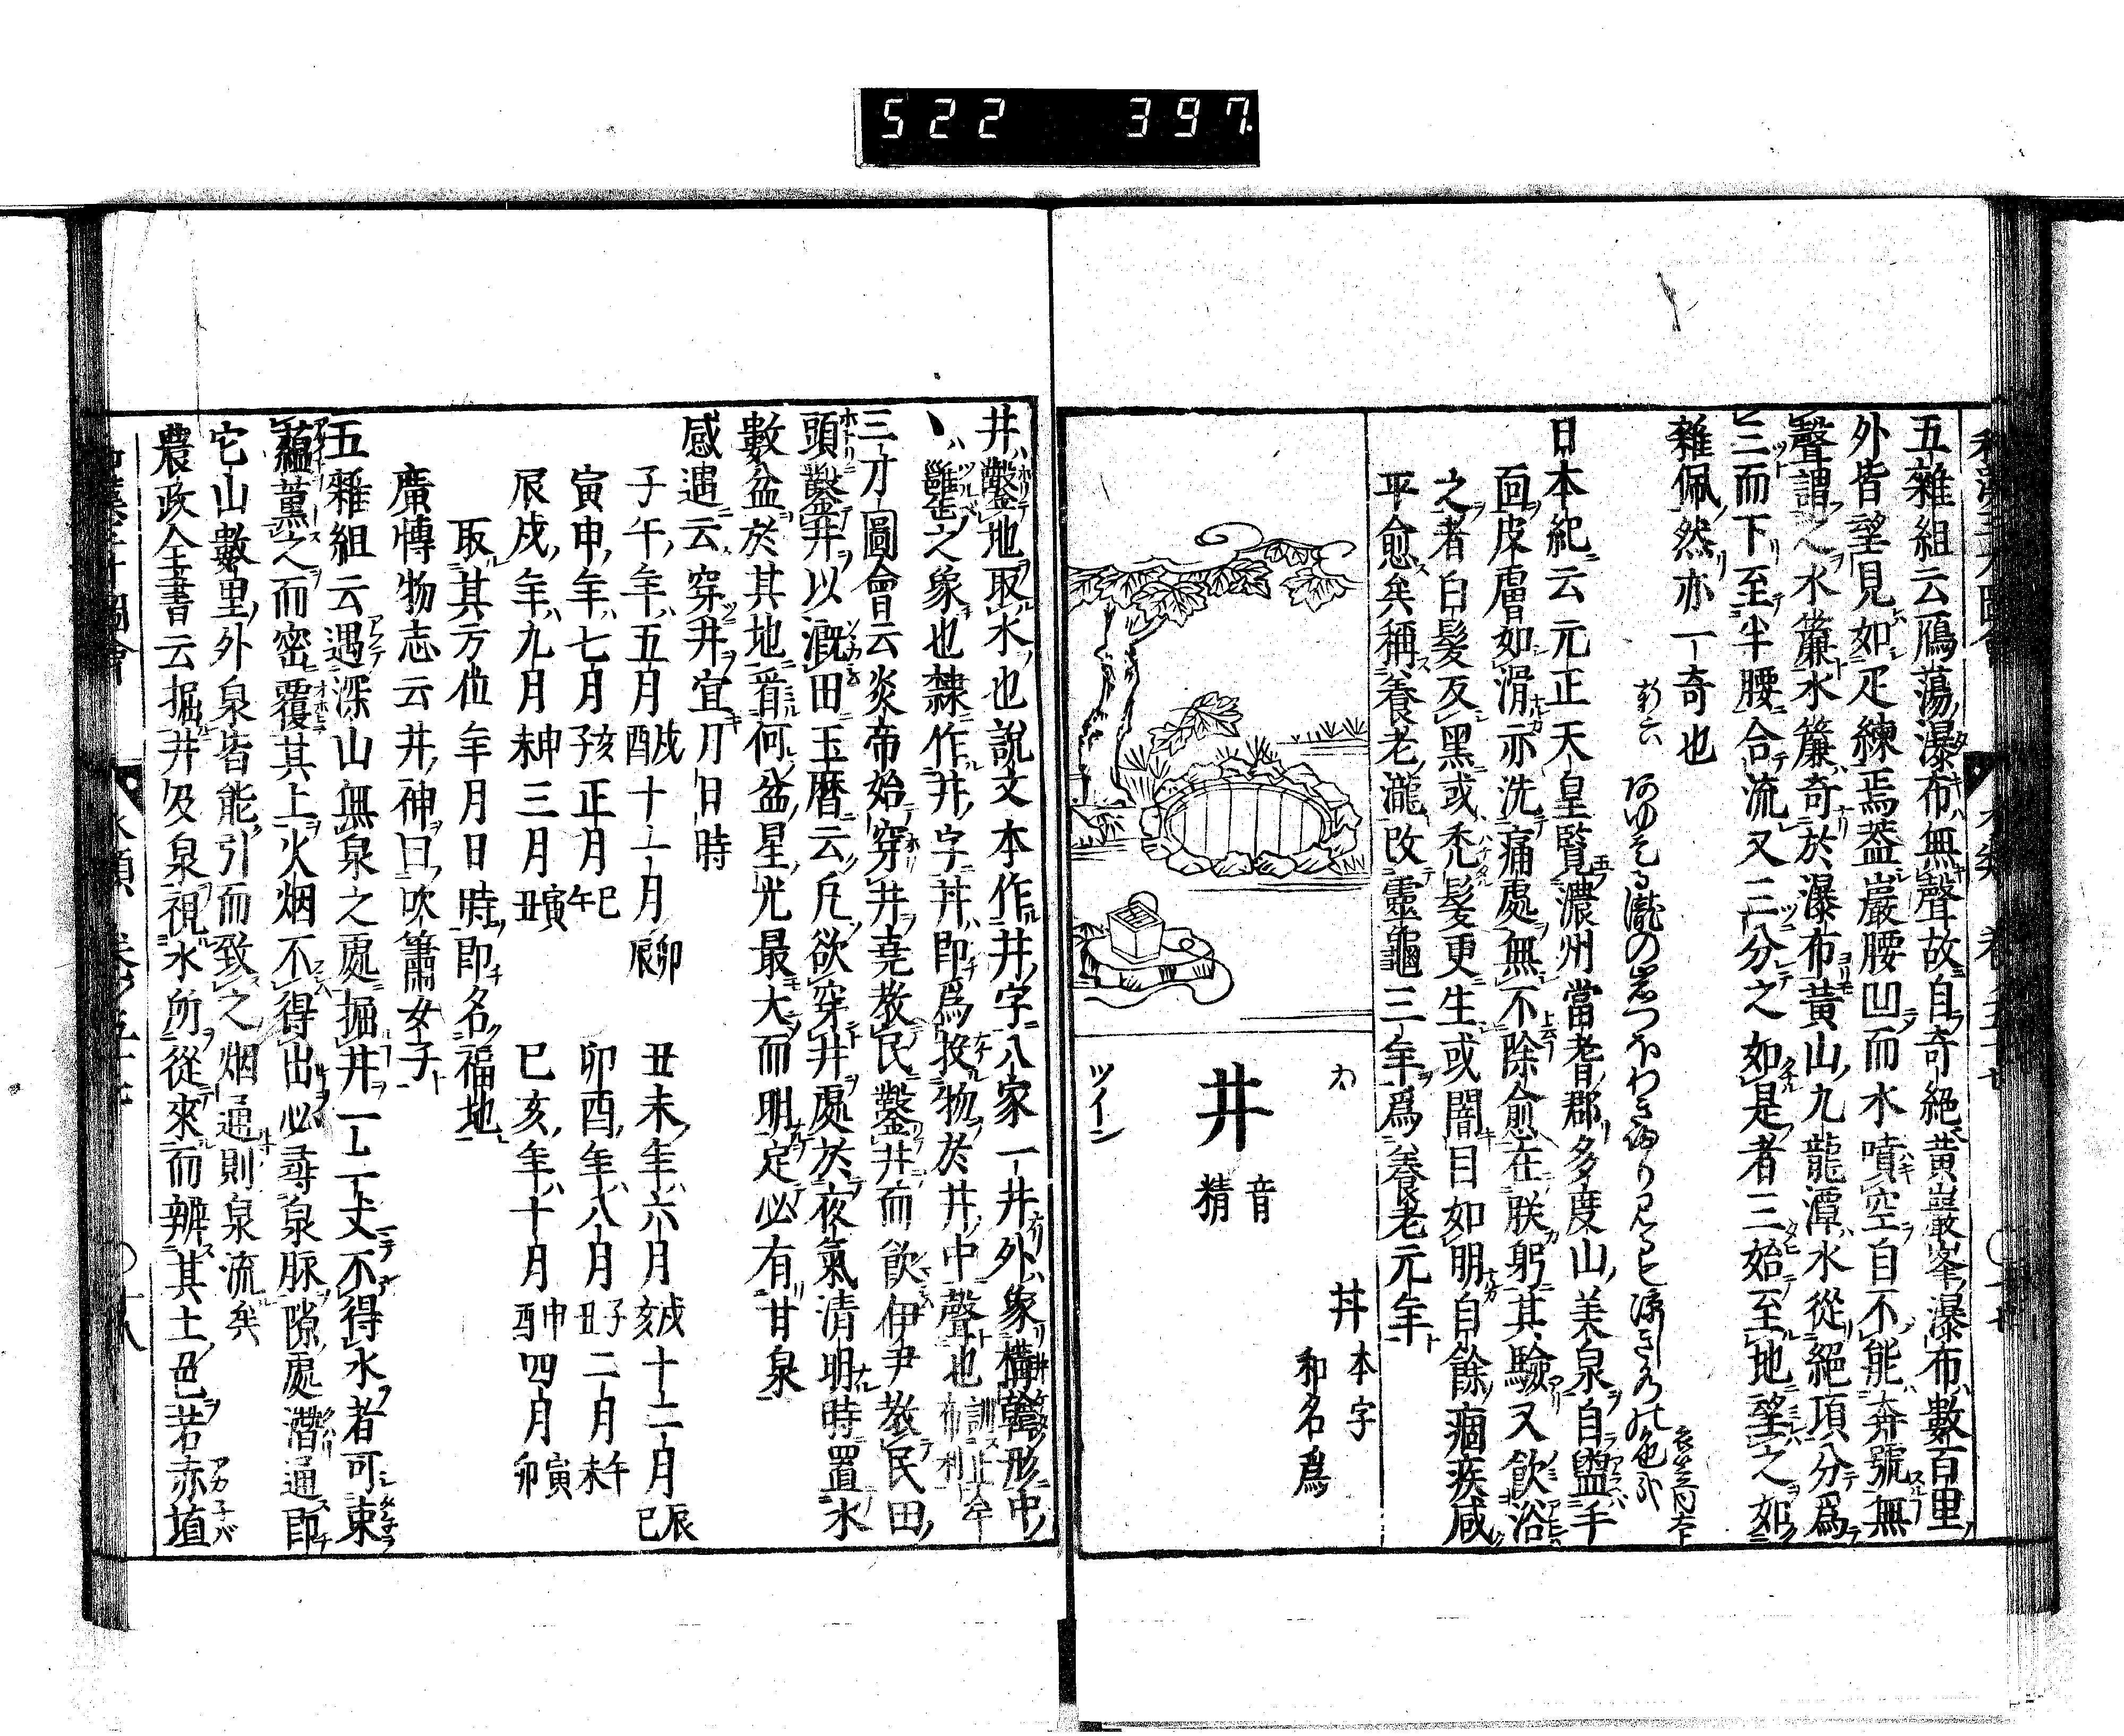 522 397.
五雜組云鴈蕩瀑布無聲故自奇絕黃巖峯瀑布數百里
外皆望見如疋練焉蓋巖腰凹而水噴空自不能奔號無
聲謂之水簾水簾奇於瀑布黃山九龍潭水從絕項分爲
三而下至半腰合流又三分之如是者三始至地望之如
雜佩然亦一奇也
日本紀云元正天皇覽濃州當耆郡多度山美泉自盥手
面皮膚如滑亦洗痛處無不除愈在朕躬其驗又飮浴
之者白髮反黑或禿髮更生或闇目如明自餘痼疾咸
平愈矣稱養老瀧改靈龜三年爲養老元年
井
音
精
丼本字
和名爲
ツイン
井鑿地取水也說文本作丼字八家一井外象構韓形中
丶雝缶之象也隸作井字丼卽爲投物於井中聲也
三才圖會云炎帝始穿井堯敎民鑿井而飮伊尹敎民田
頭鑿井以漑田玉曆云凡欲穿井處於夜氣淸明時置水
數盆於其地看何盆星光最大而明定必有甘泉
感遇云穿井宜月日時
子午年五月戌酉十一月卯辰 丑未年六月戌亥十二月辰巳
寅申年七月亥子正月巳午 卯酉年八月子丑二月午未
辰戌年九月申未三月寅丑 巳亥年十月申酉四月寅卯
取其方位年月日時卽名福地
廣博物志云井神曰吹簫女子
五雜組云遇深山無泉之處掘井一二丈不得水者可束
蘊薰之而密覆其上火烟不得出必尋泉脈隙處潛通卽
它山數里外泉皆能引而致之烟通則泉流矣
農政全書云掘井及泉視水所從來而辨其土色若赤埴